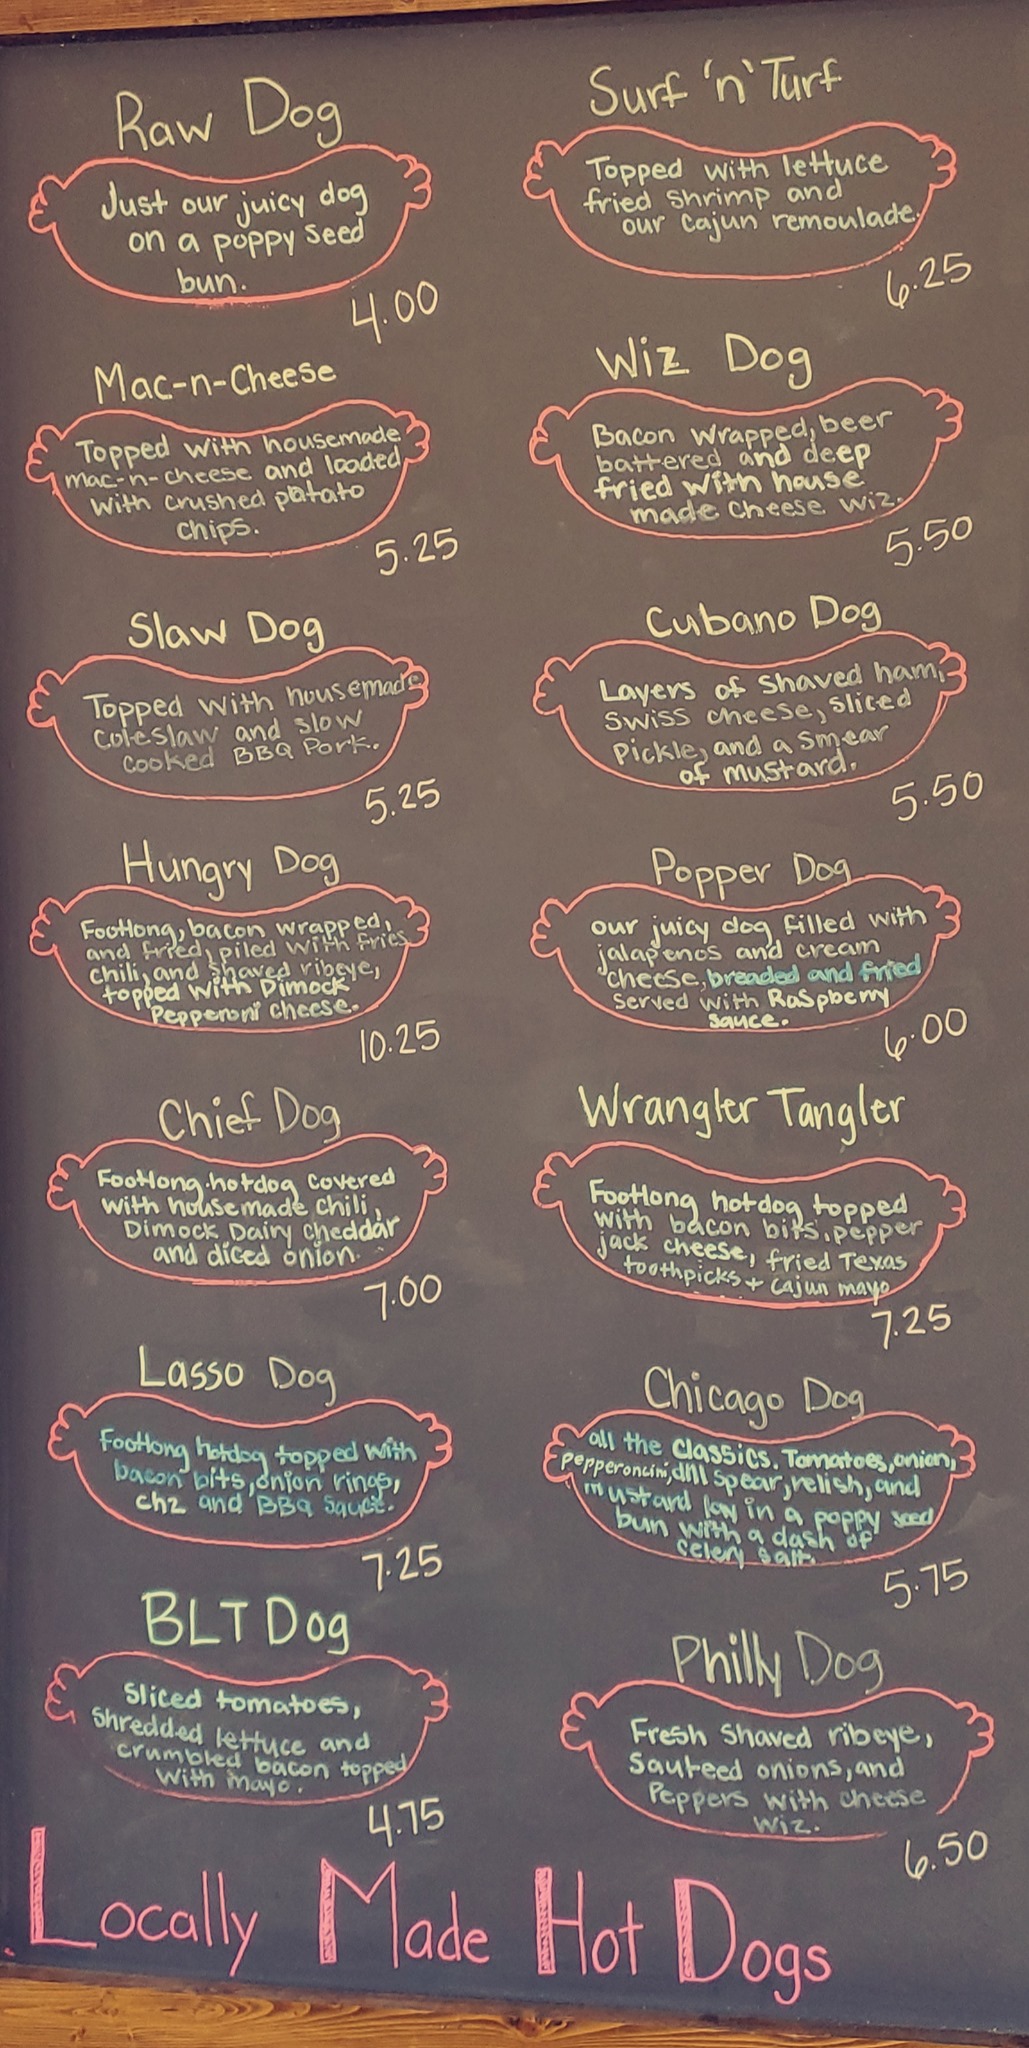 Raw Dog
Just our juicy dog
on a poppy seed
bun.
4.00
Mac-n-Cheese
Topped with housemade
mac-n-cheese and loaded
with crushed potato
chips.
5.25
Slaw Dog
Topped with housemade
coleslaw and slow
cooked BBQ Pork.
5.25
Hungry Dog
Footlong, bacon wrapped,
and fried, piled with fries
chili, and shaved ribeye,
topped with Dimock
Pepperoni cheese.
10.25
Chief Dog
Footlong hotdog covered
with housemade chili,
Dimock Dairy cheddar
and diced onion.
7.00
Lasso Dog
Footlong hotdog topped with
bacon bits, onion rings,
chz and BBQ sauce.
7.25
BLT Dog
Sliced tomatoes,
shredded lettuce and
crumbled bacon topped
with mayo.
4.75
Surf 'n' Turf
Topped with lettuce
fried shrimp and
our Cajun remoulade.
6.25
Wiz Dog
Bacon wrapped, beer
battered and deep
fried with house
made cheese wiz.
5.50
Cubano Dog
Layers of shaved ham,
swiss cheese, sliced
pickle, and a smear
of mustard.
5.50
Popper Dog
our juicy dog filled with
jalapenos and cream
cheese, breaded and fried
served with Raspberry
sauce.
6.00
Wrangler Tangler
Footlong hotdog topped
with bacon bits, pepper
jack cheese, fried Texas
toothpicks + cajun mayo
7.25
Chicago Dog
all the classics. Tomatoes, onion,
pepperoncini, dill spear, relish, and
mustard lay in a poppy seed
bun with a dash of
celery salt.
5.75
Philly Dog
Fresh shaved ribeye,
sauteed onions, and
Peppers with cheese
wiz.
6.50
Locally Made Hot Dogs